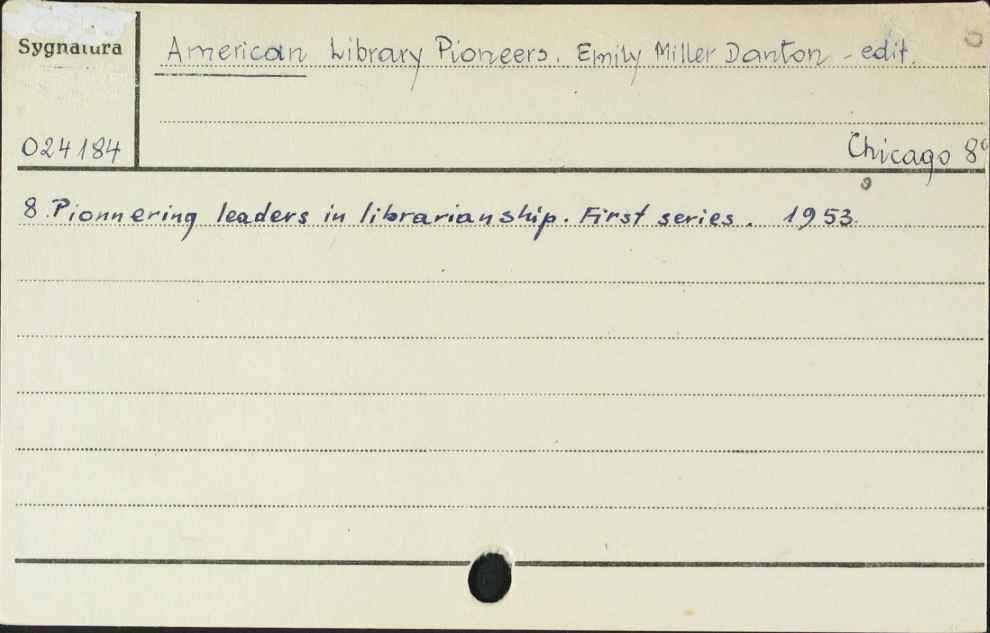 Sygnatura
American Library Pioneers. Emily Miller Danton - edit.
024184
Chicago 8°
8. Pionnering leaders in librarianship. First series. 1953.